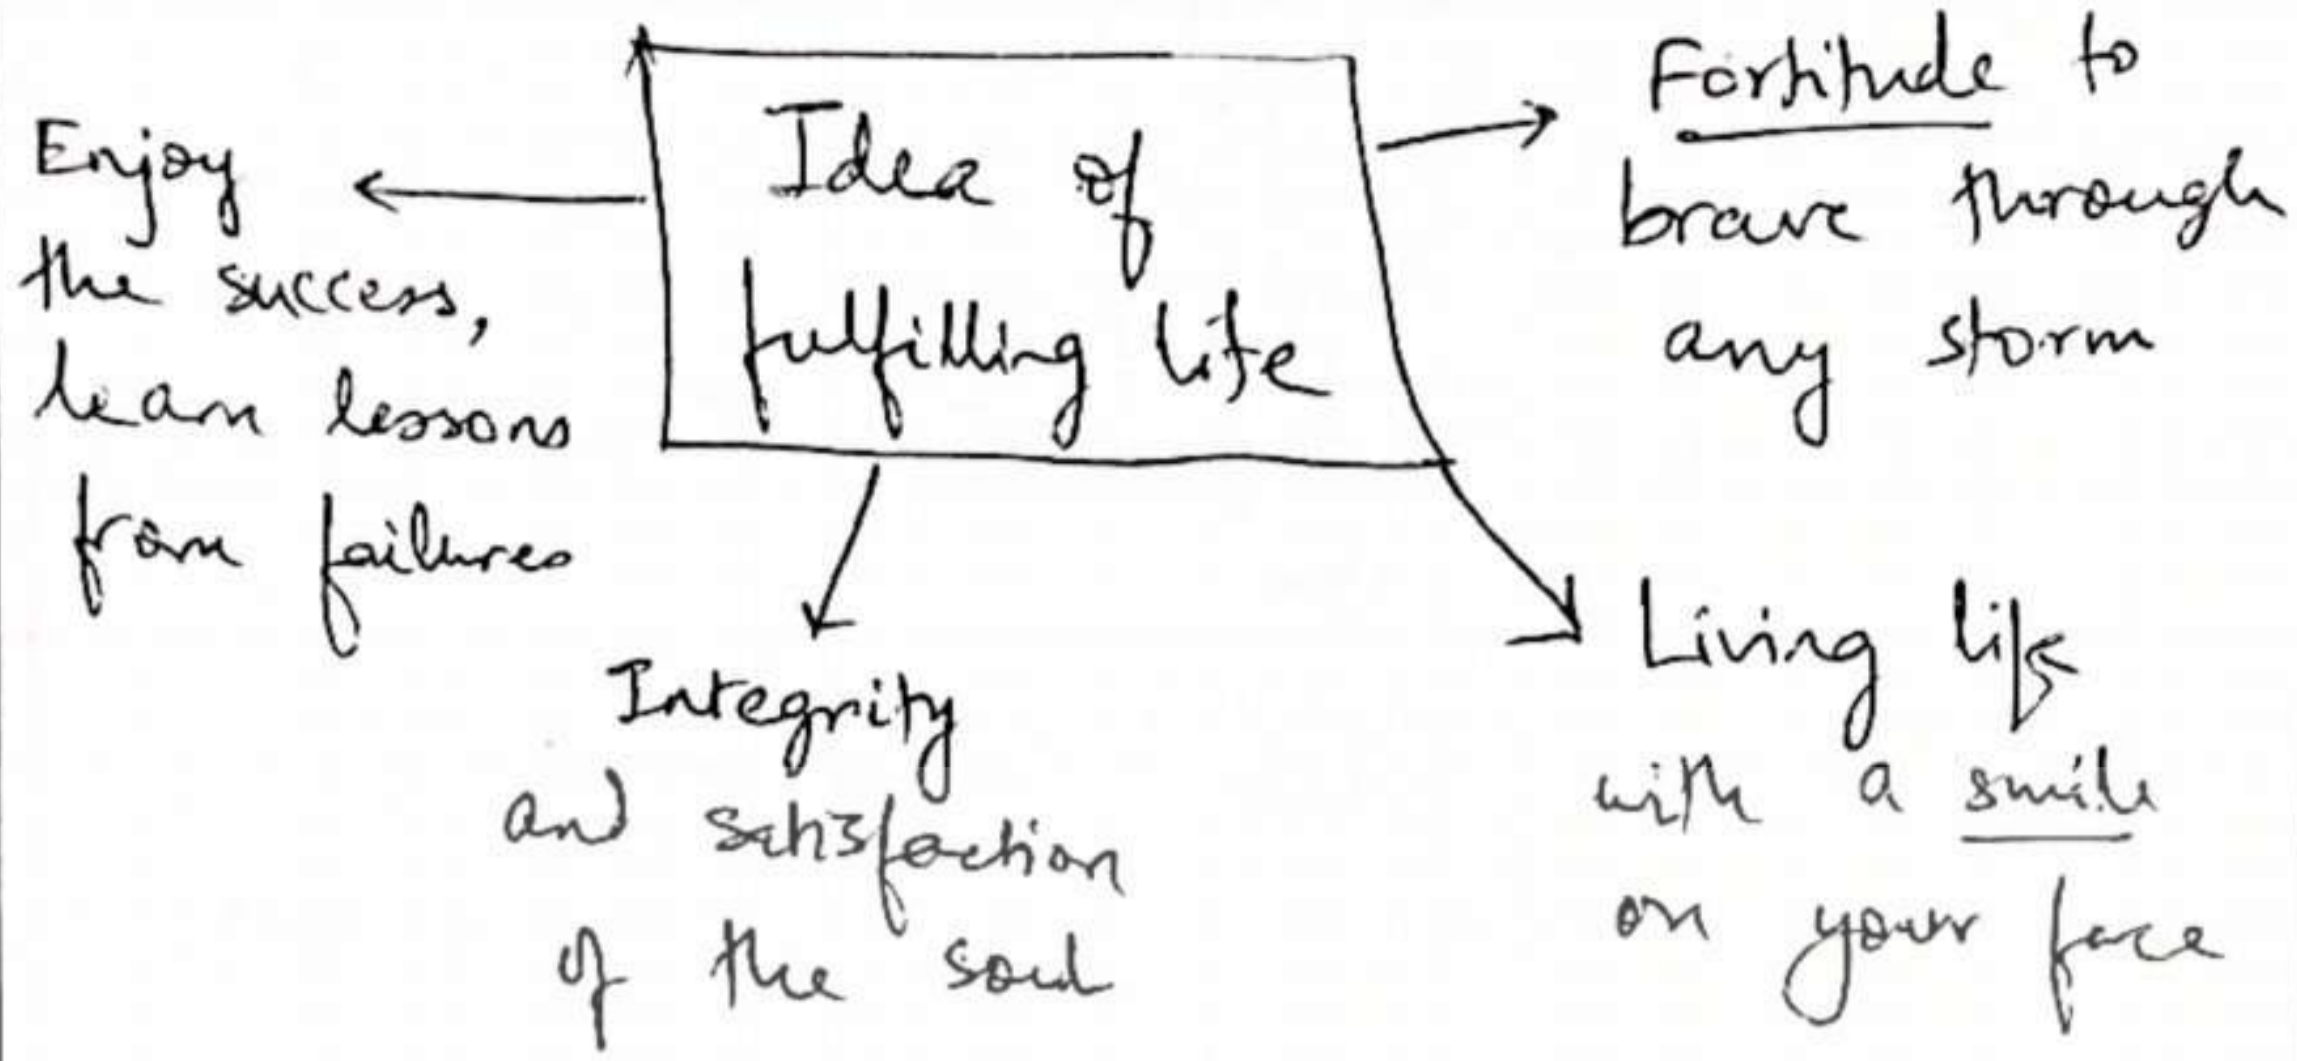 Idea of
fulfilling life
Enjoy
the success,
learn lessons
from failures
Fortitude to
brave through
any storm
Integrity
and satisfaction
of the soul
Living life
with a smile
on your face